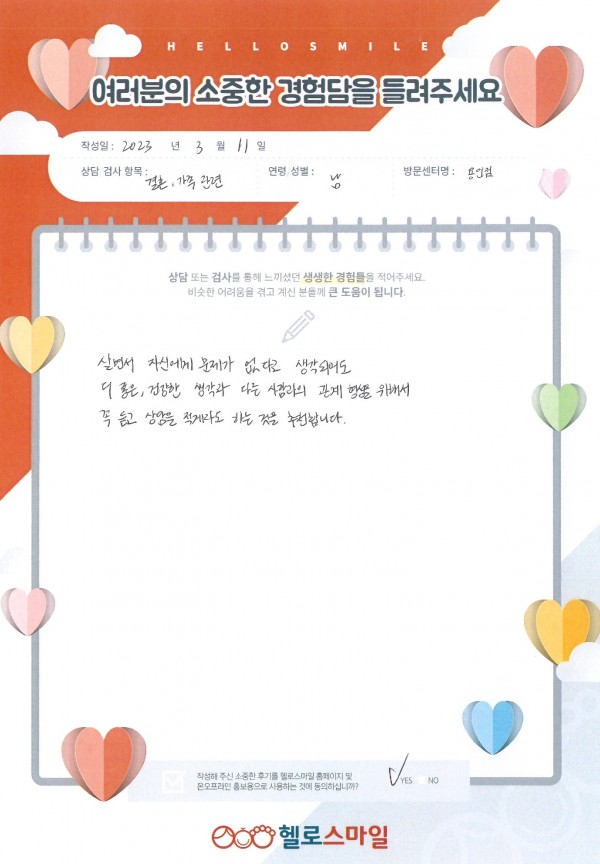 HELLOSMILE
여러분의 소중한 경험담을 들려주세요
작성일 : 2023 년 3 월 11 일
상담 검사 항목 : 결혼, 가족 관련 연령, 성별 : 남 방문센터명 : 용인점
상담 또는 검사를 통해 느끼셨던 생생한 경험들을 적어주세요.
비슷한 어려움을 겪고 계신 분들께 큰 도움이 됩니다.
살면서 자신에게 문제가 없다고 생각되어도
더 좋은, 건강한 생각과 다른 사람과의 관계 형성을 위해서
꼭 듣고 상담을 적게라도 하는 것을 추천합니다.
작성해 주신 소중한 후기를 헬로스마일 홈페이지 및
온오프라인 홍보용으로 사용하는 것에 동의하십니까?
YES NO
헬로스마일